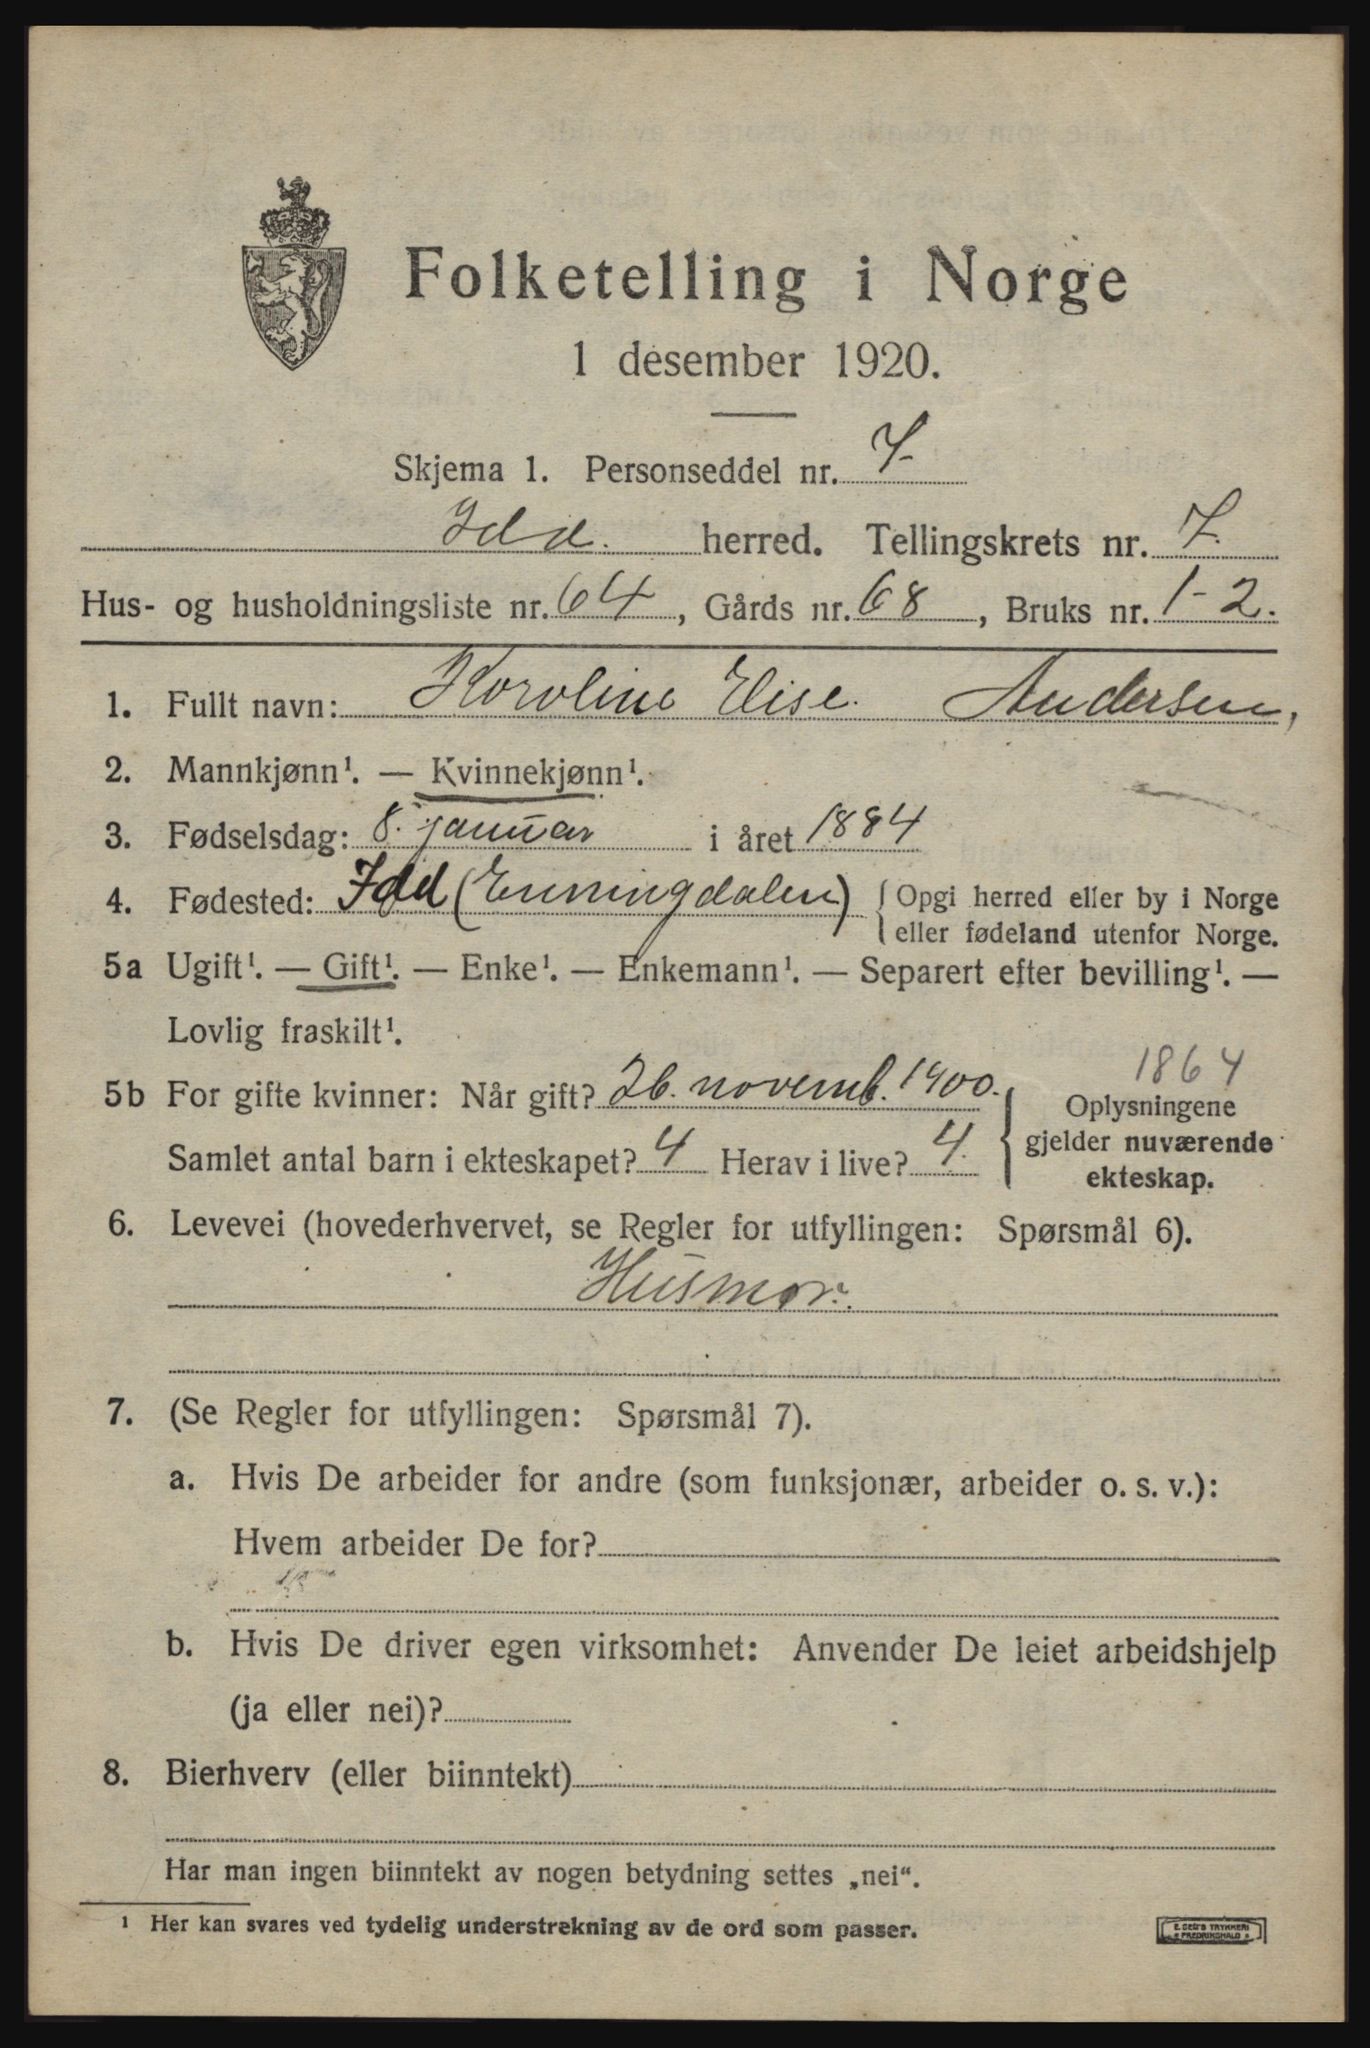 Folketelling i Norge
1 desember 1920.
Skjema 1. Personseddel nr. 7-
Idd. herred. Tellingskrets nr. 7.
Hus- og husholdningsliste nr. 64, Gårds nr. 68, Bruks nr. 1-2.
1. Fullt navn: Karoline Elise. Andersen,
2. Mannkjønn¹. — Kvinnekjønn¹.
3. Fødselsdag: 8. januar i året 1884
4. Fødested: Idd (Enningdalen) Opgi herred eller by i Norge
eller fødeland utenfor Norge.
5a Ugift¹. — Gift¹. — Enke¹. — Enkemann¹. — Separert efter bevilling¹. —
Lovlig fraskilt¹.
1864
5b For gifte kvinner: Når gift? 26. novemb. 1900. Oplysningene
gjelder nuværende
Samlet antal barn i ekteskapet? 4 Herav i live? 4. ekteskap.
6. Levevei (hovederhvervet, se Regler for utfyllingen: Spørsmål 6).
Husmor.
7. (Se Regler for utfyllingen: Spørsmål 7).
a. Hvis De arbeider for andre (som funksjonær, arbeider o. s. v.):
Hvem arbeider De for?
b. Hvis De driver egen virksomhet: Anvender De leiet arbeidshjelp
(ja eller nei)?
8. Bierhverv (eller biinntekt)
Har man ingen biinntekt av nogen betydning settes „nei“.
¹ Her kan svares ved tydelig understrekning av de ord som passer.
TRYKKERI
FREDRIKSHALD